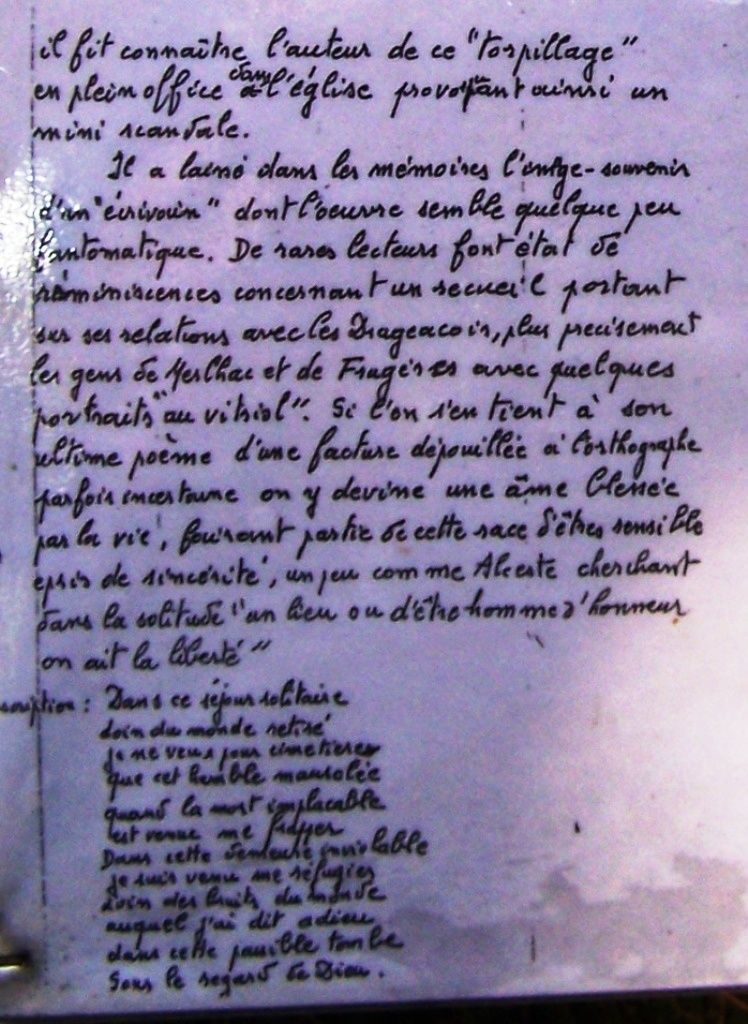 il fit connaître l'auteur de ce "torpillage"
en plein office dans l'église provoquant ainsi un
mini scandale.
Il a laissé dans les mémoires l'image-souvenir
d'un "écrivain" dont l'oeuvre semble quelque peu
fantomatique. De rares lecteurs font état de
réminiscences concernant un recueil portant
sur ses relations avec les Drageacois, plus precisement
les gens de Merlhac et de Fragères avec quelques
portraits "au vitriol". Si l'on s'en tient à son
ultime poème d'une facture dépouillée à l'orthographe
parfois incertaine on y devine une âme blessée
par la vie, faisant partie de cette race d'êtres sensible
epris de sincérité, un peu comme Alceste cherchant
dans la solitude "un lieu ou d'être homme d'honneur
on ait la liberté"
Dans ce séjour solitaire
loin du monde retiré
je ne veus pour cimetieres
que cet humble mausolée
quand la mort implacable
est venue me frapper
Dans cette demeure inviolable
je suis venu me réfugier
loin des bruits du monde
auquel j'ai dit adieu
dans cette paisible tombe
Sous le regard de Dieu.